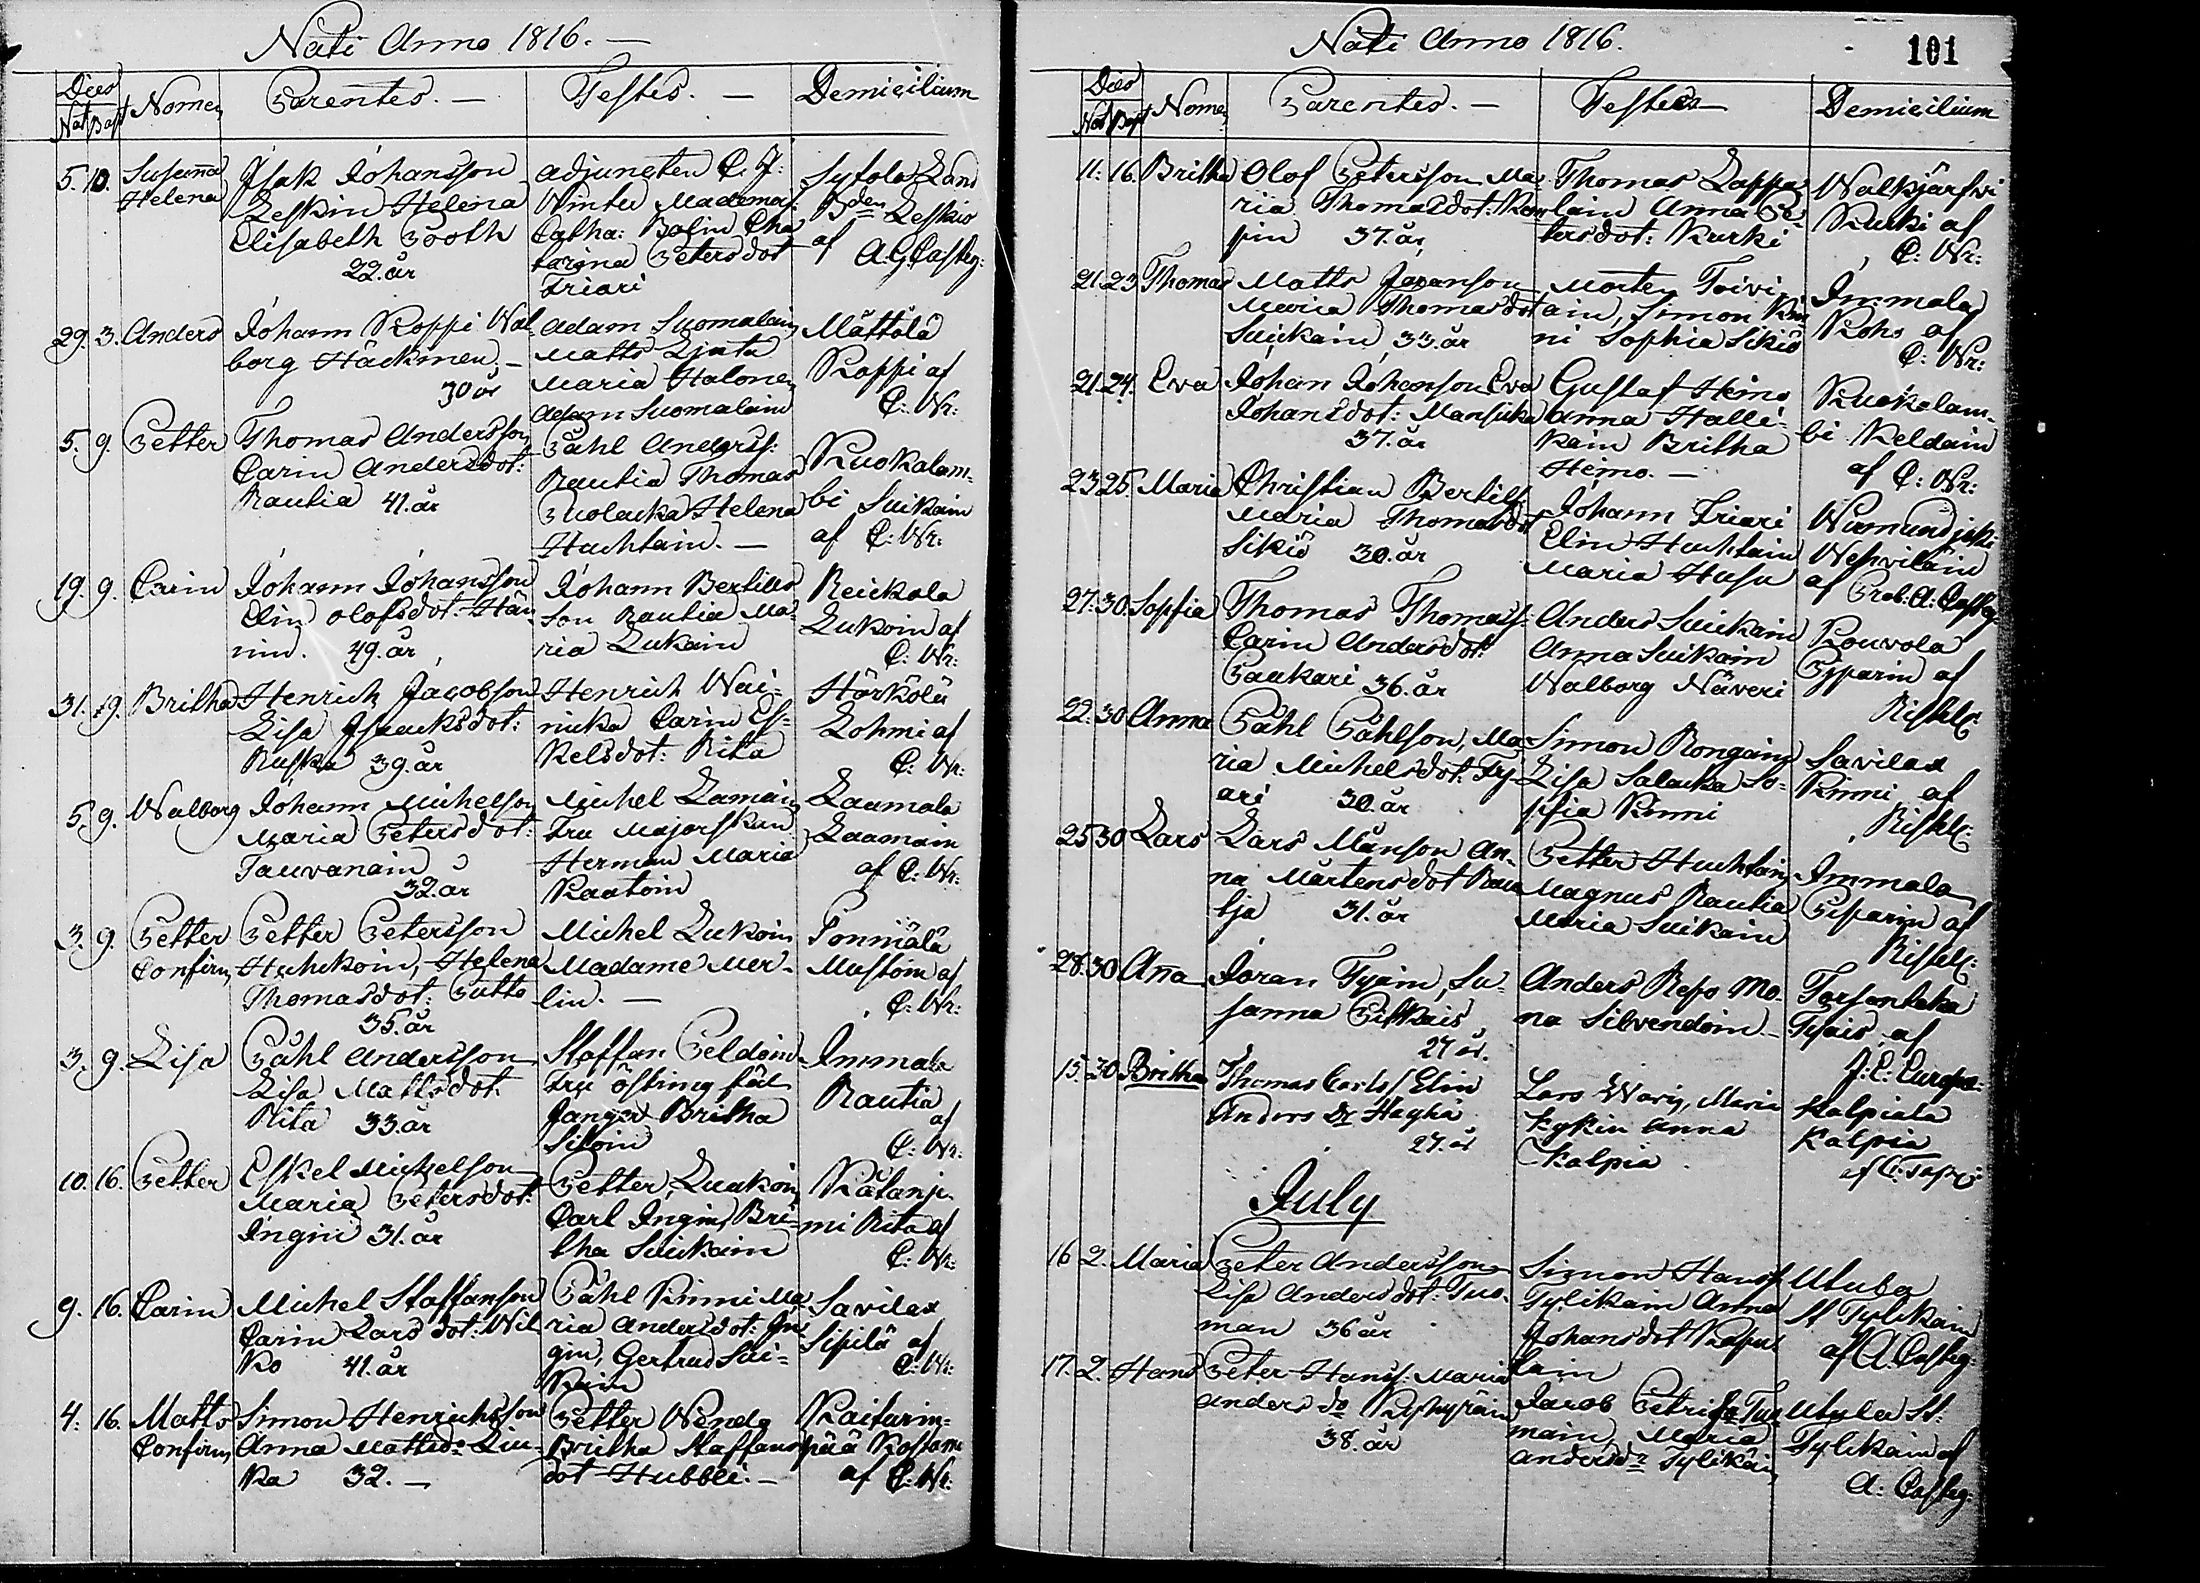 Nati Anno 1816. —
Dies
Nat Bapt Nomen Parentes. — Testes. — Domicilium
5. 10. Susanna Helena
Isak Johansson
Leskin Helena
Elisabeth Pooth
22. år
adjuncten C. J:
Winter Mademois:
Catha: Bolin Cha
tarina Petersdot
Friari
Sytola Land
Bden Leskis
af A. G. Casteg:
29. 3. Anders
Johann Koppi Wal
borg Häckmen —
30 år
Adam Suomalain
Matts Ljuta
Maria Halonen
Adam Suomalain
Mättölä
Koppi af
C: Wr:
5. 9. Petter
Thomas Andersson
Carin Andersdot:
Rautia 41. år
Påhl Anderss:
Rautia Thomas
Puolacka Helena
Huchtain. —
Ruokolam-
bi Suikain
af C: Wr:
19. 9. Carin
Johann Johansson
Elin Olofsdot: Hän
nin. 49. år
Johann Bertills
son Rautia Ma-
ria Lukain
Reickola
Lukoin af
C: Wr:
31. 19. Britha
Henrich Jacobson
Lisa Isaacksdot:
Ruska 39. år
Henrich Wai-
nicka Carin Es-
kelsdot: Rita
Härkölä
Lohmi af
C: Wr:
5. 9. Walborg
Johann Michelson
Maria Petersdot:
Tauvanain
32. år
Michel Lamain
Fru Majorskan
Herman Maria
Kaatoin
Laamala
Laamain
af C: Wr:
3. 9. Petter Confirm
Petter Petersson
Huhckoin, Helena
Thomasdot: Putto
35. år
Michel Lukoin
Madame Mer-
lin. —
Ponniälä
Mustoin af
C: Wr:
3. 9. Lisa
Påhl Andersson
Lisa Mattsdot.
Rita 33. år
Staffan Peldoin
Fru Östring fält
Janger Britha
Siloin
Immala
Rautia
af
C: Wr:
10. 16. Petter
Eskel Michelson
Maria Petersdot:
Ingin 31. år
Petter Luukoin
Carl Ingin, Bri-
tha Suickain
Kåtanje
mi Rita af
C: Wr:
9. 16. Carin
Michel Staffanson
Carin Lars dot: Wil
ko 41. år
Påhl Kinni Ma
ria Andersdot: In
gin, Gertrud Sui-
kain
Savilax
Sipilä af
C: Wr:
4: 16. Matts Confirm
Simon Henrichsson
Anna Mattsdr Liu-
ka 32. —
Petter Wendg
Britha Staffans
dot Hubbli. —
Kaitarin-
pää Kostom
af C: Wr:
Nati Anno 1816.
101
Dies
Nat Bapt Nomen Parentes. — Testes — Domicilium
11. 16. Britha
Olof Petersson Ma-
ria Thomasdot: Kar
pin 37. år
Thomas Lappa
lain Anna Pe
tersdot: Kurki
Walkjärfvi
Kurki af
C: Wr:
21. 23 Thomas
Matts Joranson
Maria Thomasdot
Suickain 33. år
Morten Toivi
ain, Simon Kin
ni Sophia Sikiö
Immala
Koho af
C: Wr:
21. 24. Eva
Johan Johanson Eva
Johansdot: Mansicka
37. år
Gustaf Heino
Anna Halli-
kain Britha
Heimo. —
Ruokolam-
bi Keldain
af C: Wr:
23 25 Maria
Christian Bertils
Maria Thomasdot
Sikiö 30. år
Johann Friari
Elin Huchtain
Maria Husu
Wirmundjoki
Wehvilain
af Prob: A: Casteg
27. 30. Sopfia
Thomas Thomass:
Carin Andersdot:
Paukari 36. år
Anders Suickain
Anna Suikain
Walborg Näveri
Rouvola
Pyparin af
22. 30 Anna
Påhl Påhlson, Ma
ria Michelsdot: Fy-
ari 30. år
Simon Rongain
Lisa Salacka So-
pfia Kinni
Savilax
Kinni af
25 30 Lars
Lars Månson An-
na Mårtensdot Rau
tja 31. år
Petter Huchtain
Magnus Rautia
Maria Suikain
Immala
Pisparin af
28. 30 Anna
Joran Tyäin, Su-
sanna Pitkais
27 år.
Anders Repo Mo-
na Silvendoin —
Torsantaka
Tyäis, af
J: C: Europæ:
15. 30 Britha
Thomas Carls/ Elin
Anders Dr Hayhä
27. år
Lars Warg, Maria
Kykin Anna
Kalpia
Kalpiala
Kalpia
July
16 2. Maria
Peter Andersson
Lisa Andersdot: Tuo-
man 36 år
Simon Hanss
Tylikain Anna
Johansdot Kapu
lain
Utula
St Tylikain
af A. Casteg:
17. 2. Hans
Peter Hanss: Maria
Anders dr
38. år
Jacob Petriss Tuo
main, Maria
Andersdr Tylikäin
Utula St.
Tylikain af
A: Casteg: